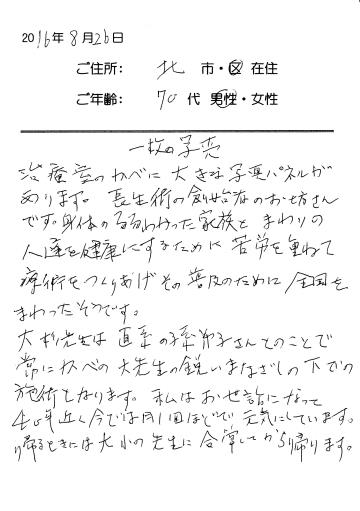 2016年8月26日
ご住所: 北 市・区 在住
ご年齢: 70 代 男性・女性
一枚の写真
治療室のかべに大きな写真パネルが
あります。長生術の創始者のお坊さん
です。身体の弱かった家族と まわりの
人達を健康にするために 苦労を重ねて
療術をつくりあげその普及のために 全国を
まわったそうです。
大杉先生は 直系の孫弟子さんとのことで
常にかべの大先生の鋭いまなざしの下での
施術となります。私はお世話になって
40年近く今では月1回ほどで元気にしています。
帰るときには大小の先生に合掌してから帰ります。